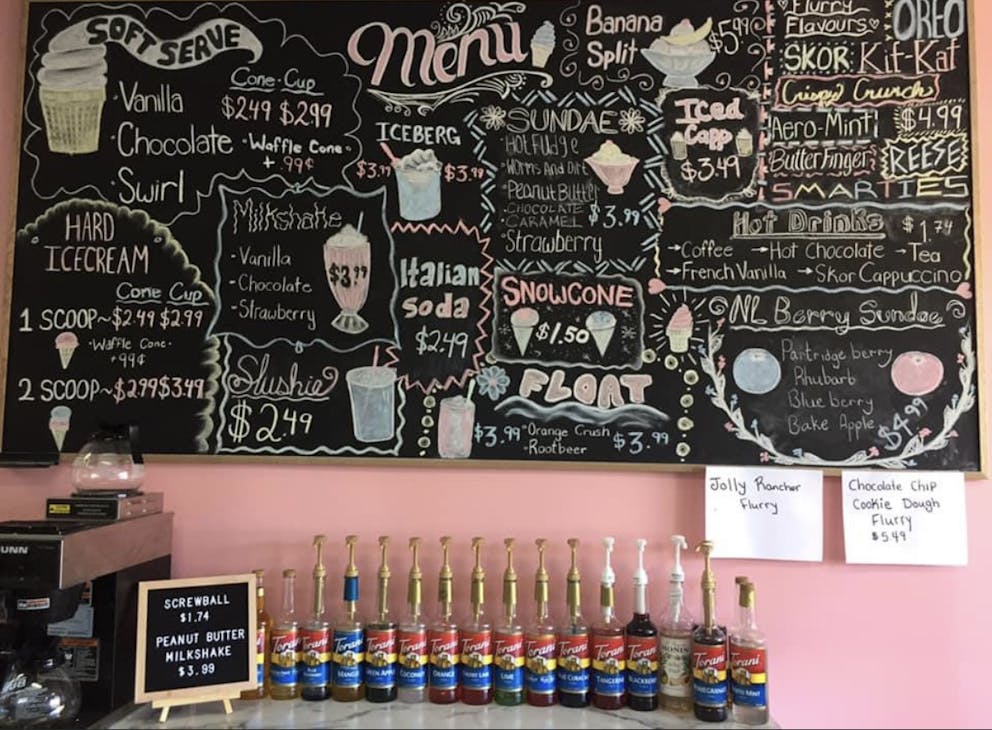 SOFT SERVE
Cone · Cup
· Vanilla $2.49 $2.99
· Chocolate · Waffle Cone ·
+ .99¢
· Swirl
Menu
Banana
Split
$5.99
Flurry
Flavours
OREO
SKOR Kit-Kat
Crispy Crunch
Aero-Mint $4.99
Butterfinger REESE
SMARTIES
ICEBERG
$3.99
SUNDAE
· Hot Fudge
· Worms And Dirt
· Peanut Butter
· CHOCOLATE
CARAMEL $3.99
· Strawberry
Iced
Capp
$3.49
HARD
ICECREAM
Cone Cup
1 SCOOP~$2.49 $2.99
· Waffle Cone ·
+99¢
2 SCOOP~$2.99 $3.49
Milkshake
· Vanilla
· Chocolate
· Strawberry
$3.99
Italian
Soda
$2.49
Hot Drinks $1.74
→Coffee →Hot Chocolate →Tea
→French Vanilla →Skor Cappuccino
SNOWCONE
$1.50
NL Berry Sundae
Partridge berry
Rhubarb
Blue berry
Bake Apple
$4.99
Slushie
$2.49
FLOAT
$3.99 · Orange Crush $3.99
· Rootbeer
Jolly Rancher
Flurry
Chocolate Chip
Cookie Dough
Flurry
$5.49
SCREWBALL
$1.74
PEANUT BUTTER
MILKSHAKE
$3.99
BUNN
Torani
Torani
Torani
MANGO
Torani
GREEN APPLE
Torani
COCONUT
Torani
ORANGE
Torani
CHERRY LIME
Torani
LIME
Torani
Torani
BLUE CURACAO
Torani
TANGERINE
Torani
BLACKBERRY
MONIN
Torani
POMEGRANATE
Torani